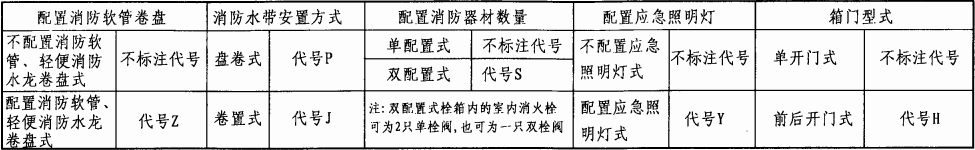 配置消防软管卷盘 消防水带安置方式 配置消防器材数量 配置应急照明灯 箱门型式
不配置消防软管、轻便消防水龙卷盘式 不标注代号 盘卷式 代号P 单配置式 不标注代号 不配置应急照明灯式 不标注代号 单开门式 不标注代号
双配置式 代号S
配置消防软管、轻便消防水龙卷盘式 代号Z 卷置式 代号J 注: 双配置式栓箱内的室内消火栓可为2只单栓阀,也可为一只双栓阀 配置应急照明灯式 代号Y 前后开门式 代号H